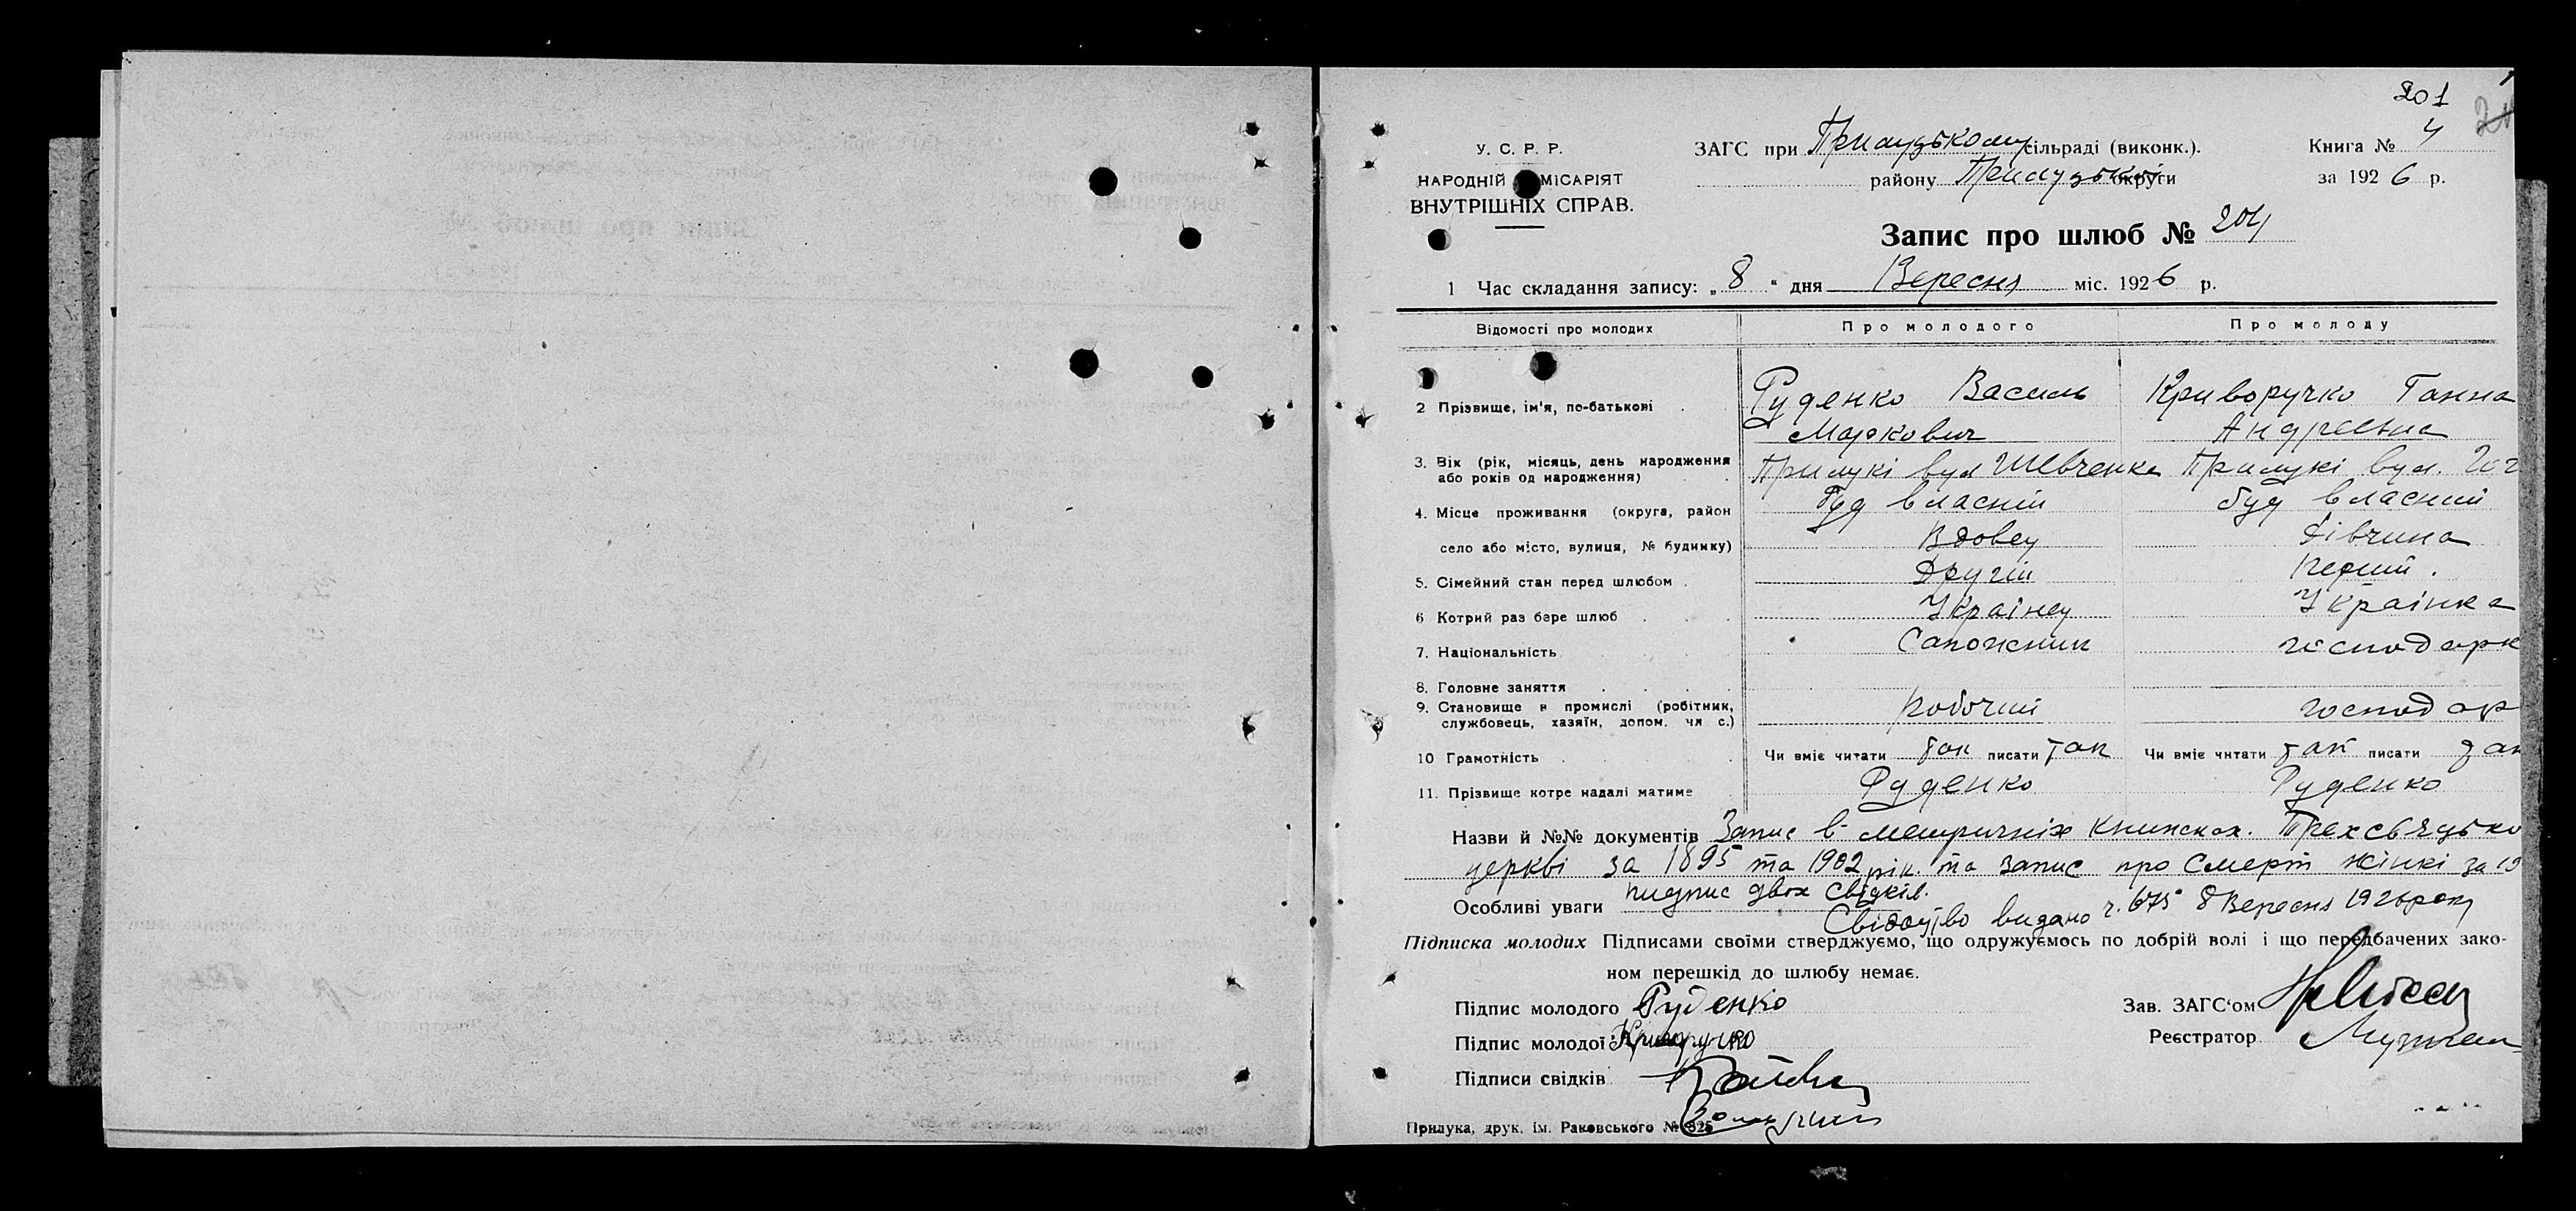 201
У. С. Р. Р.
НАРОДНІЙ КОМІСАРІЯТ
ВНУТРІШНІХ СПРАВ.
ЗАГС при Прилуцькому сільраді (виконк.).
району Прилуцької округи
Книга № 4
за 1926 р.
Запис про шлюб № 204
1 Час складання запису: „8“ дня Вересня міс. 1926 р.
Відомості про молодих Про молодого Про молоду
2 Прізвище, ім'я, по-батькові Руденко Василь Криворучко Ганна
Маркович Андреевна
3. Вік (рік, місяць, день народження Прилукі вул Шевченка Прилукі вул.
або років од народження)
Буд власній буд власний
4. Місце проживання (округа, район
Вдовец дівчина
село або місто, вулиця, № будинку)
Другій Перший.
5. Сімейний стан перед шлюбом
Українец Українка
6 Котрий раз бере шлюб
Сапожник господарк
7. Національність
8. Головне заняття
9. Становище в промислі (робітник, Робочий господар
службовець, хазяїн, допом. чл с.)
10 Грамотність Чи вміє читати так писати так Чи вміє читати так писати так
11. Прізвище котре надалі матиме Руденко Руденко
Назви й №№ документів Запис в метричніх книжках. Трехсвядько
церкві за 1895 та 1902 рік. та запис про Смерт жінкі за 19
підпис двох свідків.
Особливі уваги Свідоцтво видано ч. 675 8 Вересня 1926 року
Підписка молодих Підписами своїми стверджуємо, що одружуємось по добрій волі і що передбачених зако-
ном перешкід до шлюбу немає.
Підпис молодого Руденко
Зав. ЗАГС‘ом
Підпис молодої Криворучко
Реєстратор
Підписи свідків
Прилука, друк. ім. Раковського № 825